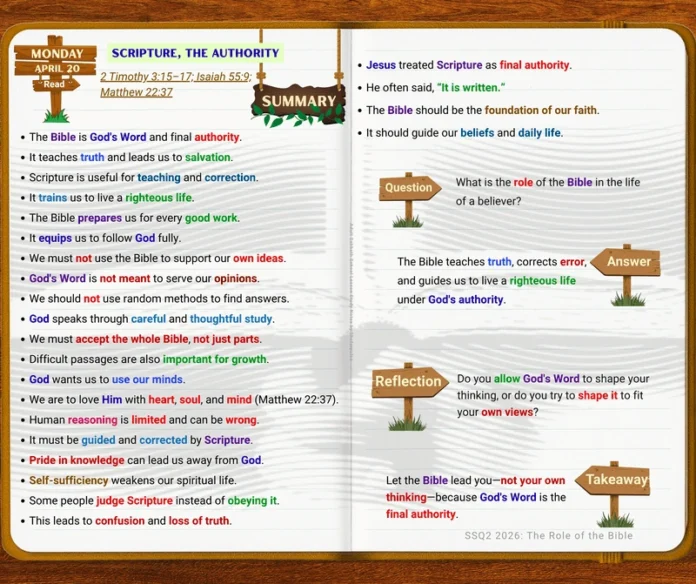 MONDAY
APRIL 20
Read
SCRIPTURE, THE AUTHORITY
2 Timothy 3:15–17; Isaiah 55:9;
Matthew 22:37
SUMMARY
• The Bible is God's Word and final authority.
• It teaches truth and leads us to salvation.
• Scripture is useful for teaching and correction.
• It trains us to live a righteous life.
• The Bible prepares us for every good work.
• It equips us to follow God fully.
• We must not use the Bible to support our own ideas.
• God's Word is not meant to serve our opinions.
• We should not use random methods to find answers.
• God speaks through careful and thoughtful study.
• We must accept the whole Bible, not just parts.
• Difficult passages are also important for growth.
• God wants us to use our minds.
• We are to love Him with heart, soul, and mind (Matthew 22:37).
• Human reasoning is limited and can be wrong.
• It must be guided and corrected by Scripture.
• Pride in knowledge can lead us away from God.
• Self-sufficiency weakens our spiritual life.
• Some people judge Scripture instead of obeying it.
• This leads to confusion and loss of truth.
• Jesus treated Scripture as final authority.
• He often said, "It is written."
• The Bible should be the foundation of our faith.
• It should guide our beliefs and daily life.
Question
What is the role of the Bible in the life
of a believer?
The Bible teaches truth, corrects error,
and guides us to live a righteous life
under God's authority.
Answer
Reflection
Do you allow God's Word to shape your
thinking, or do you try to shape it to fit
your own views?
Let the Bible lead you—not your own
thinking—because God's Word is the
final authority.
Takeaway
SSQ2 2026: The Role of the Bible